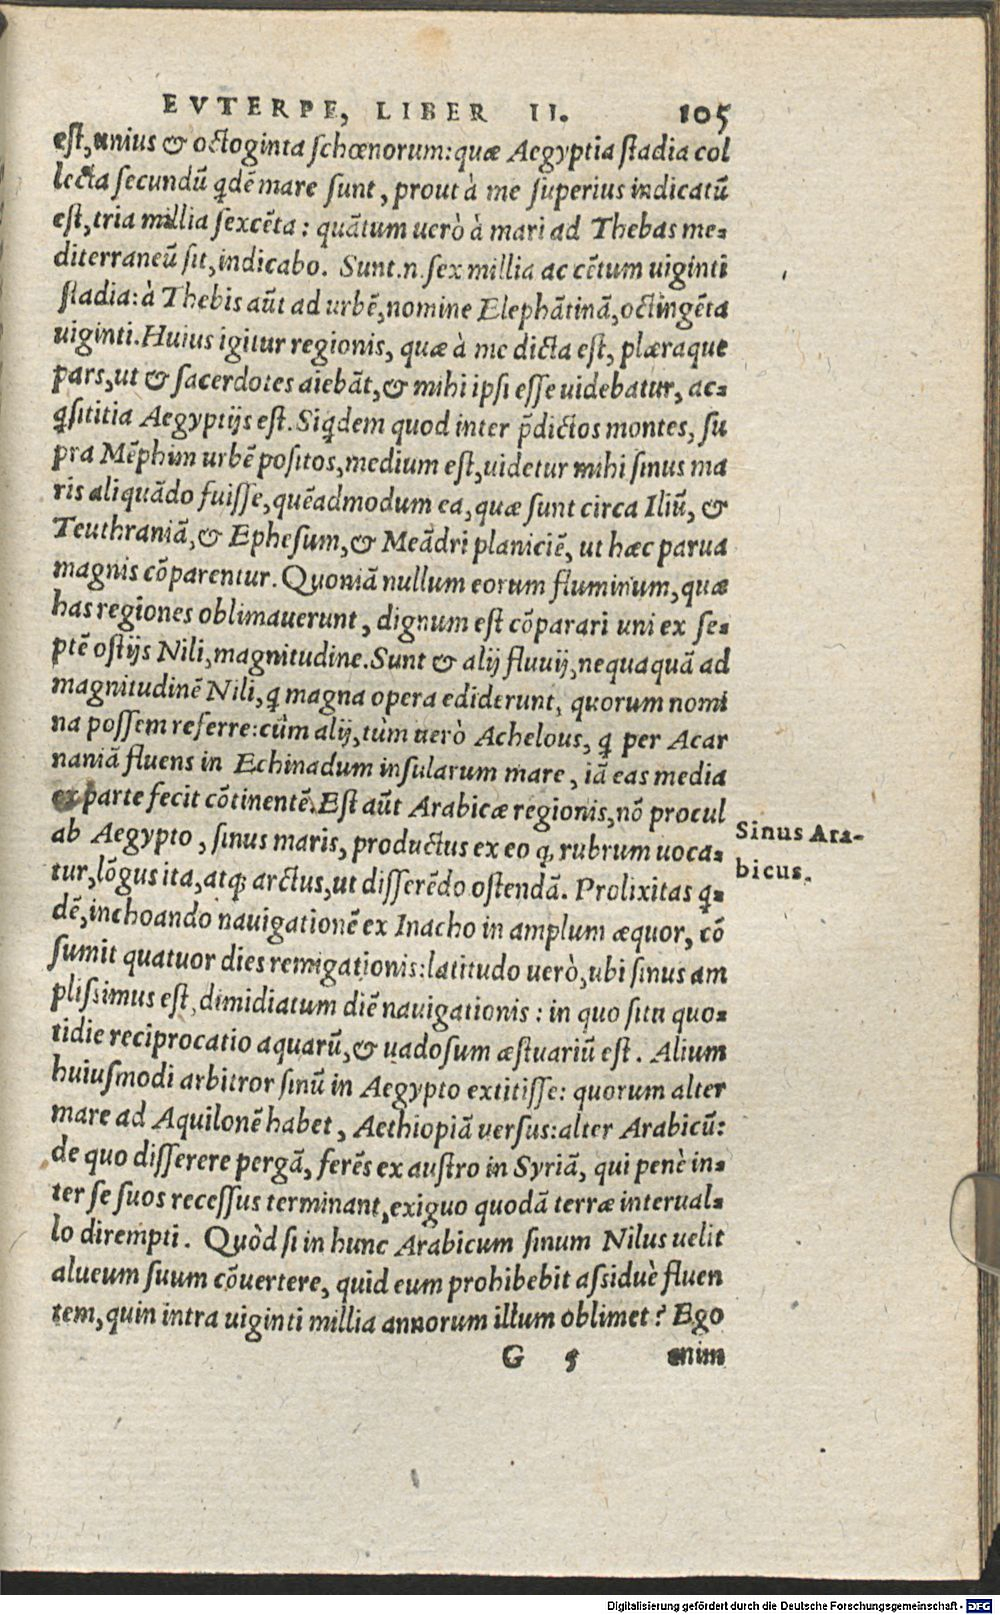 EVTERPE, LIBER II. 105
est, unius & octoginta schœnorum: quæ Aegyptia stadia col
lecta secundū qdē mare sunt, prout à me superius indicatū
est, tria millia sexcēta: quātum uerò à mari ad Thebas me-
diterraneū sit, indicabo. Sunt.n.sex millia ac cētum uiginti
stadia: à Thebis aūt ad urbē, nomine Elephātinā, octingēta
uiginti. Huius igitur regionis, quæ à me dicta est, plæraque
pars, ut & sacerdotes aiebāt, & mihi ipsi esse uidebatur, ac-
qsititia Aegyptijs est. Siqdem quod inter p̄dictos montes, su
pra Mēphim urbē positos, medium est, uidetur mihi sinus ma
ris aliquādo fuisse, quēadmodum ea, quæ sunt circa Iliū, &
Teuthraniā, & Ephesum, & Meādri planiciē, ut hæc parua
magnis cōparentur. Quoniā nullum eorum fluminum, quæ
has regiones oblimauerunt, dignum est cōparari uni ex se-
ptē ostijs Nili, magnitudine. Sunt & alij fluuij, nequaquā ad
magnitudinē Nili, q magna opera ediderunt, quorum nomi
na possem referre: cùm alij, tùm uerò Achelous, q per Acar
naniā fluens in Echinadum insularum mare, iā eas media
ex parte fecit cōtinentē. Est aūt Arabicæ regionis, nō procul
ab Aegypto, sinus maris, productus ex eo q, rubrum uoca-
tur, lōgus ita, atq; arctus, ut disserēdo ostendā. Prolixitas q-
dē, inchoando nauigationē ex Inacho in amplum æquor, cō
sumit quatuor dies remigationis: latitudo uerò, ubi sinus am
plissimus est, dimidiatum diē nauigationis: in quo situ quo-
tidie reciprocatio aquarū, & uadosum æstuariū est. Alium
huiusmodi arbitror sinū in Aegypto extitisse: quorum alter
mare ad Aquilonē habet, Aethiopiā uersus: alter Arabicū:
de quo disserere pergā, ferēs ex austro in Syriā, qui penè in-
ter se suos recessus terminant, exiguo quodā terræ interual-
lo dirempti. Quòd si in hunc Arabicum sinum Nilus uelit
alueum suum cōuertere, quid eum prohibebit assiduè fluen
tem, quin intra uiginti millia annorum illum oblimet? Ego
G 5 enim
Sinus Ara-
bicus.
Digitalisierung gefördert durch die Deutsche Forschungsgemeinschaft - DFG